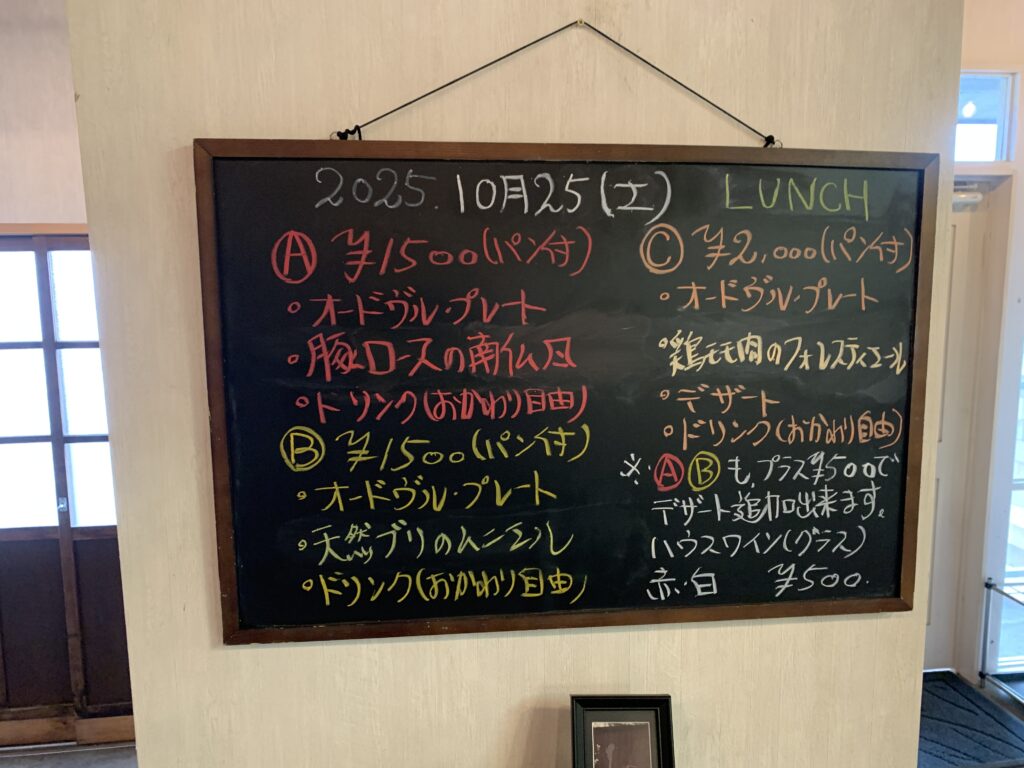 2025. 10月25(土) LUNCH
Ⓐ ¥1500(パン付)
・オードヴル・プレート
・豚ロースの南仏風
・ドリンク(おかわり自由)
Ⓑ ¥1500(パン付)
・オードヴル・プレート
・天然ブリのムニエル
・ドリンク(おかわり自由)
Ⓒ ¥2,000(パン付)
・オードヴル・プレート
・鶏モモ肉のフォレスティエール
・デザート
・ドリンク(おかわり自由)
※・ⒶⒷも、プラス¥500で
デザート追加出来ます。
ハウスワイン(グラス)
赤・白 ¥500.